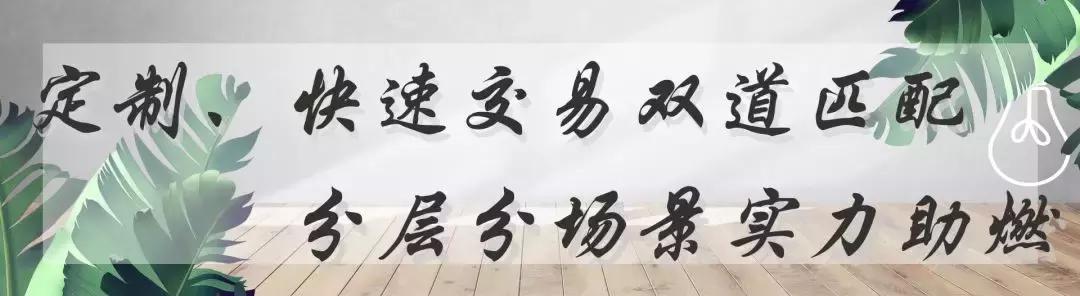 定制、快速交易双道匹配
分层分场景实力助燃